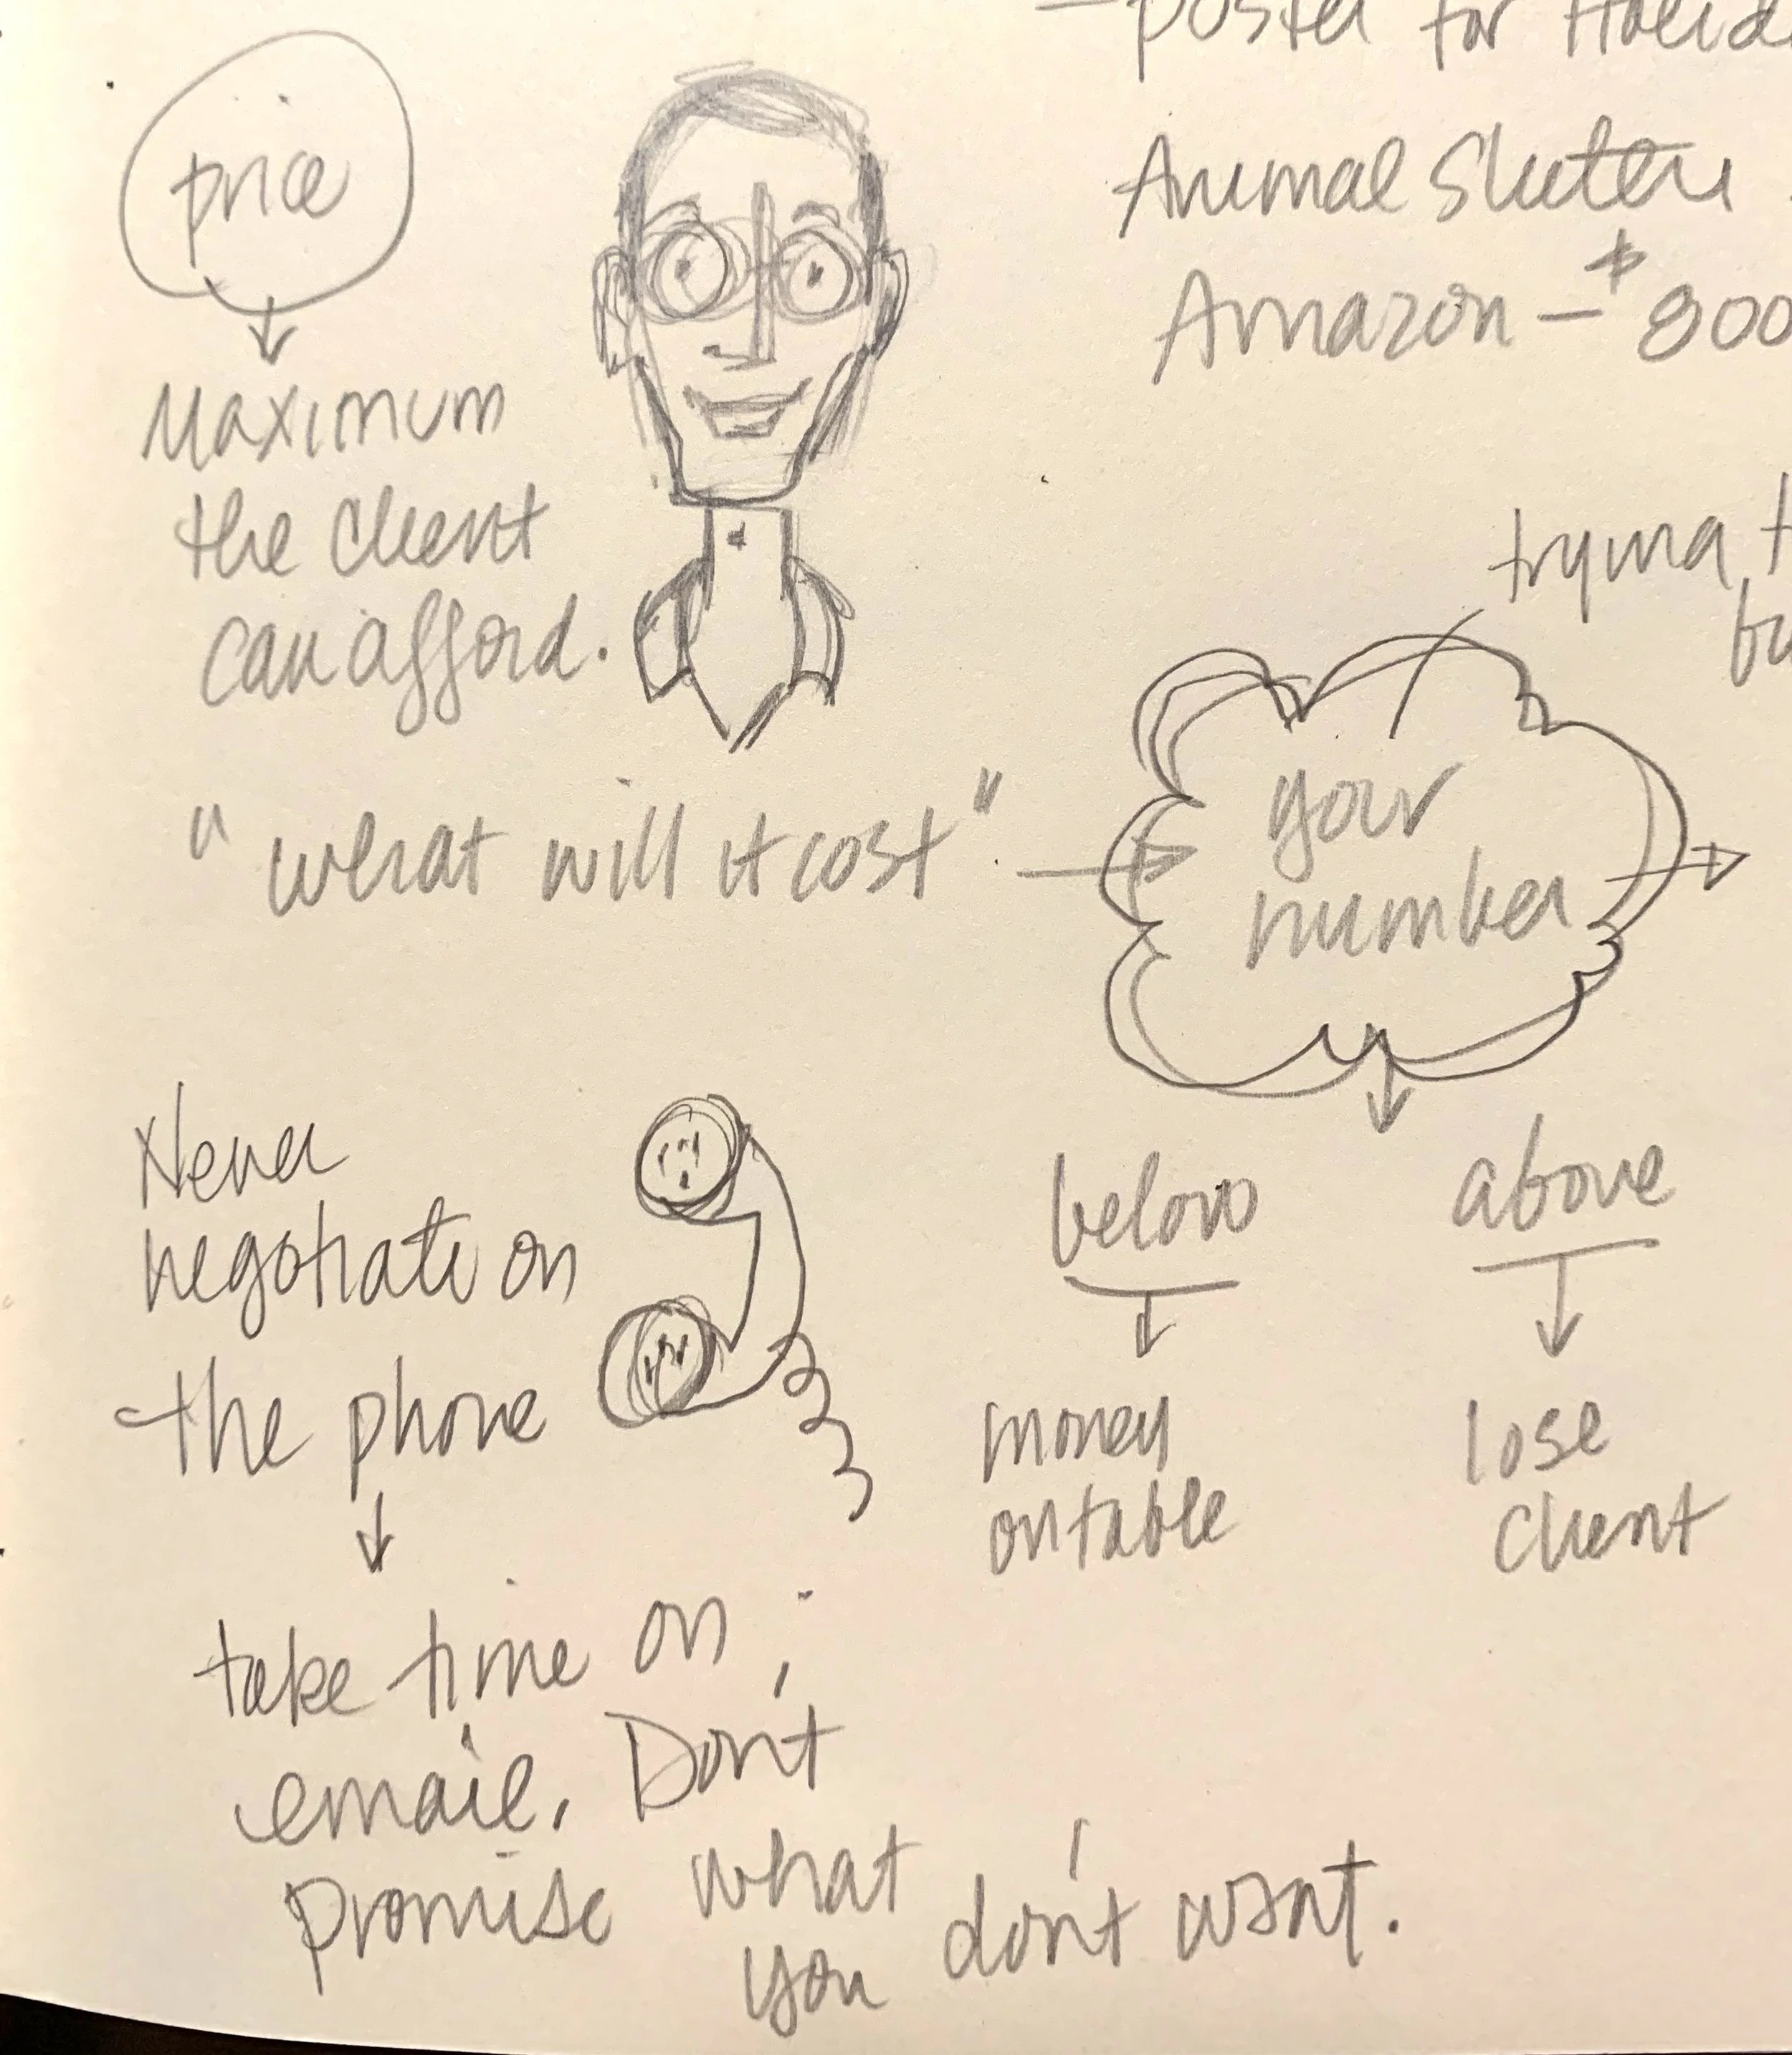 price
Maximum
the client
can afford.
poster for
Animal
Amazon – $ 800
"what will it cost"
your
number
below
above
money
on table
lose
client
Never
negotiate on
the phone
take time on
email. Don't
promise what
you don't want.